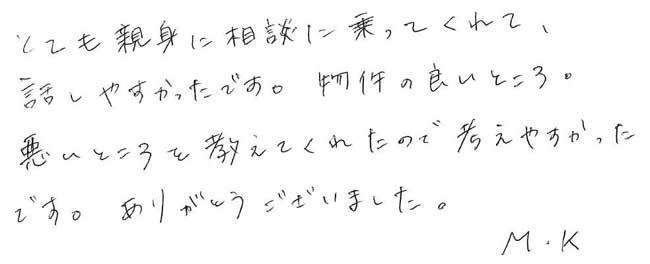 とても親身に相談に乗ってくれて、
話しやすかったです。物件の良いところ。
悪いところを教えてくれたので考えやすかった
です。ありがとうございました。
M.K